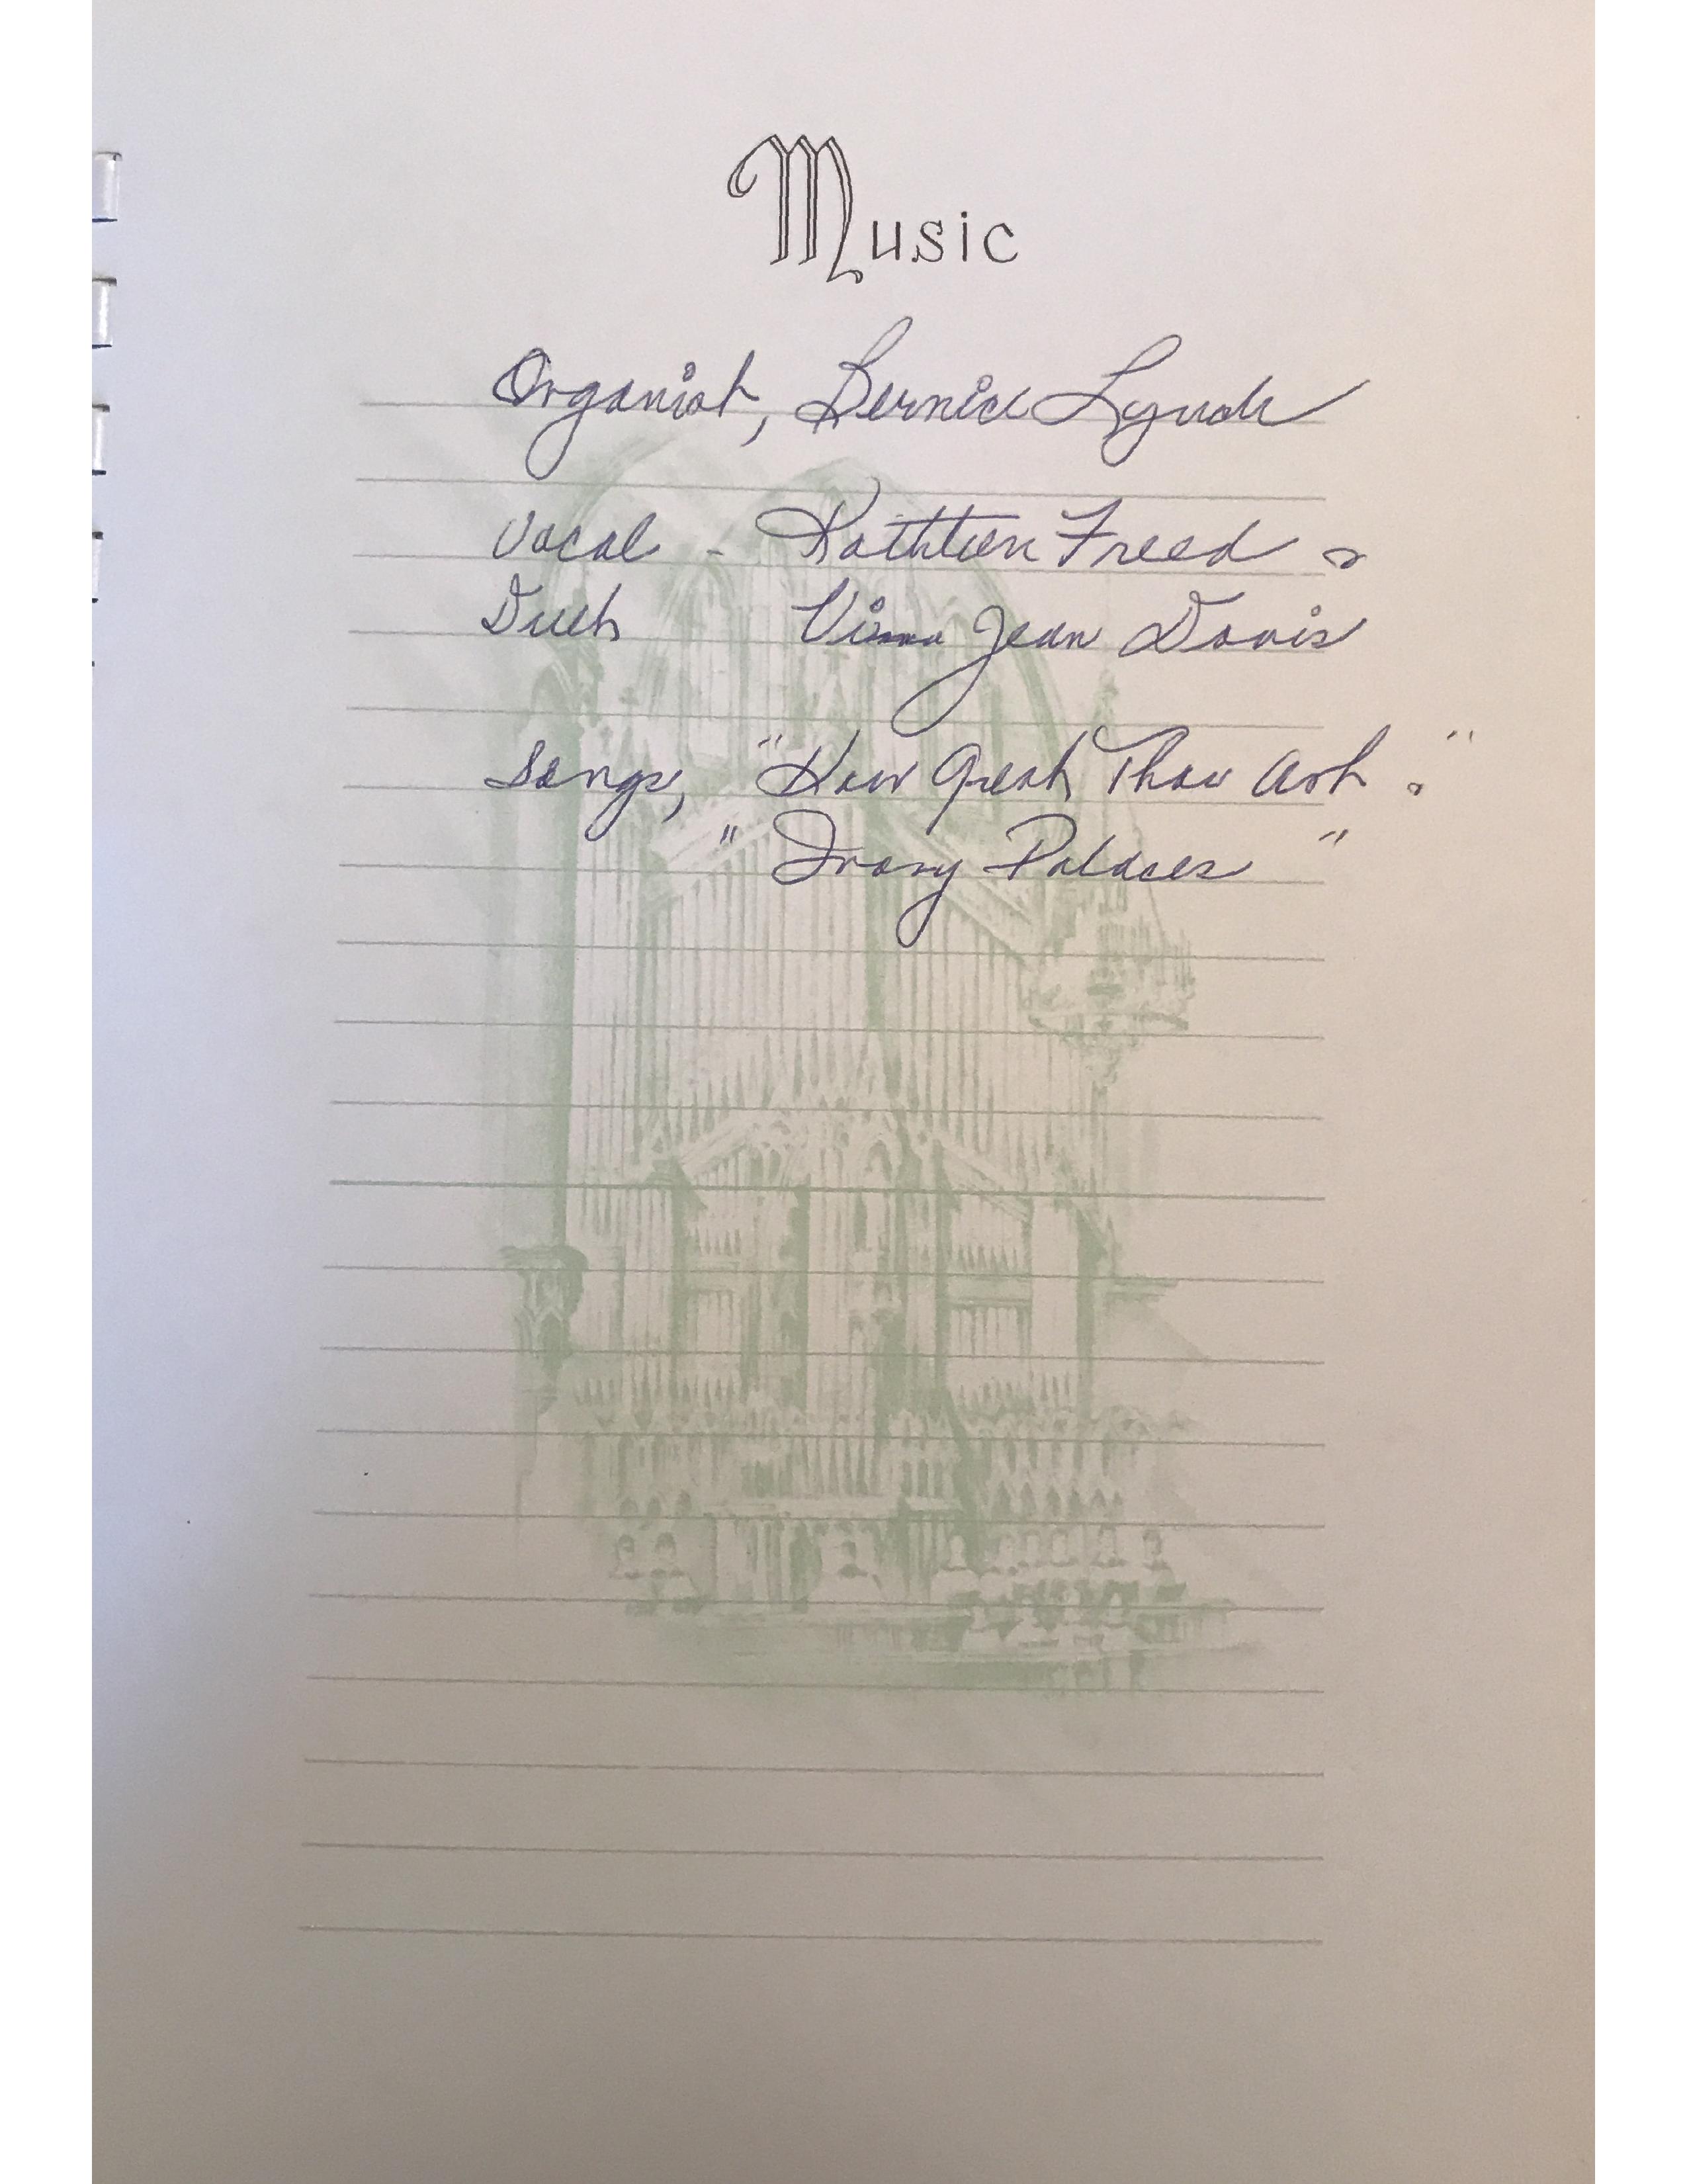 Music
Organist, Bernice Lynch
Vocal - Kathleen Freed &
Duet Jean Davis
Songs, "How Great Thou Art."
"Ivory Palaces"